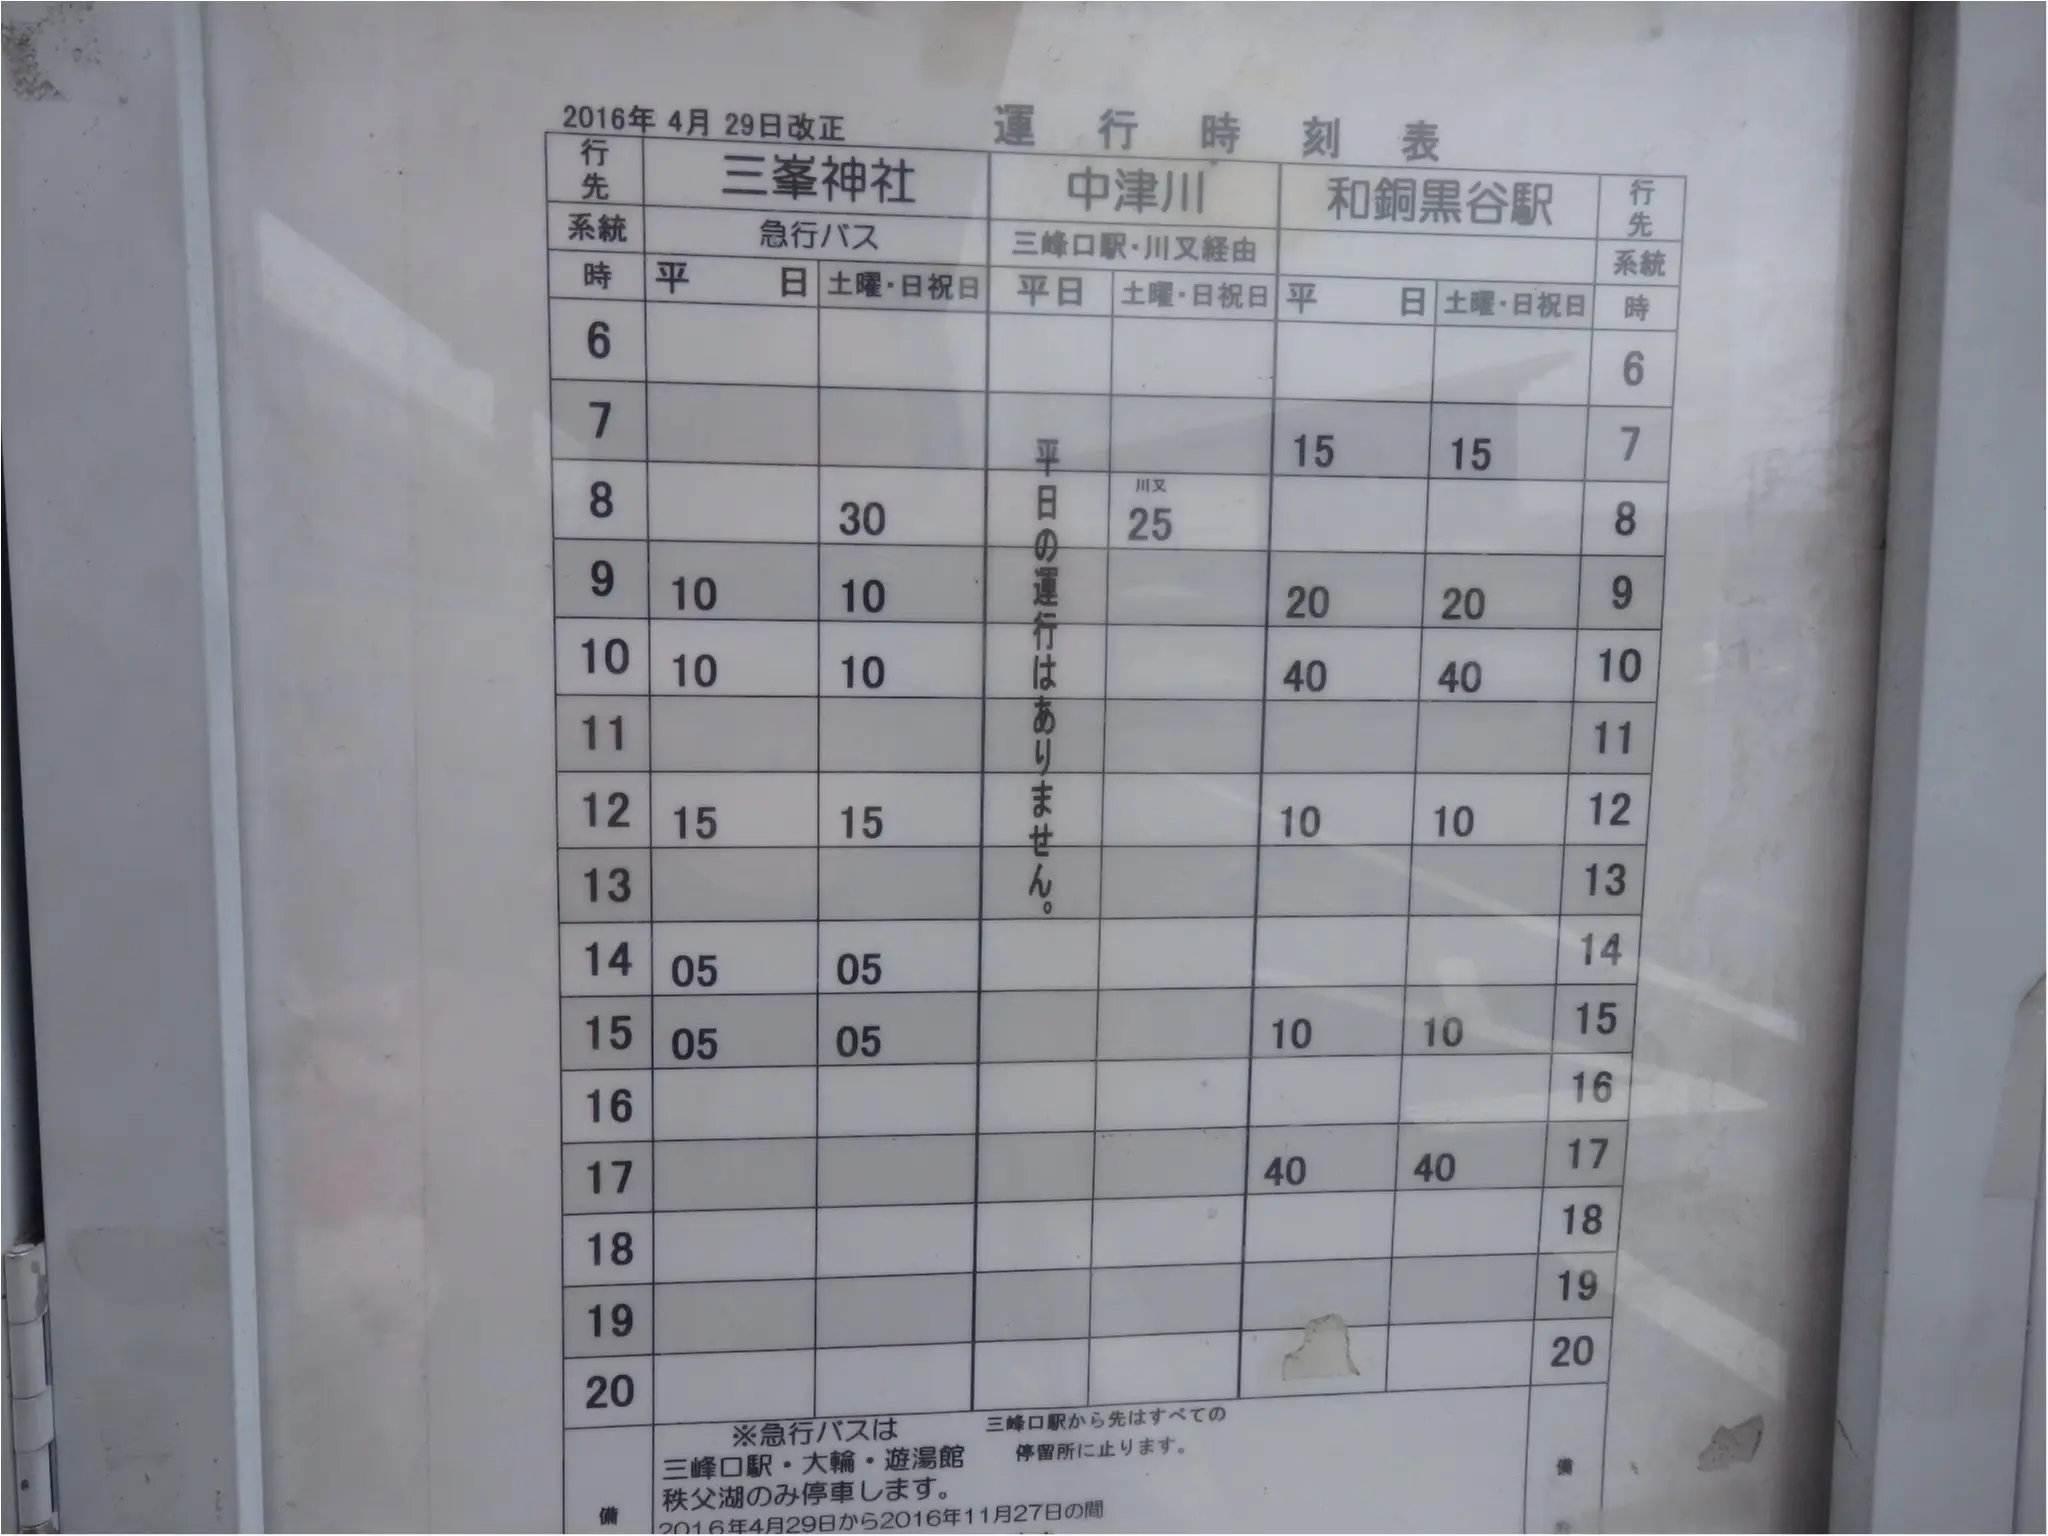 2016年 4月 29日改正 運行時刻表
行先 三峯神社 中津川 和銅黒谷駅 行先
系統 急行バス 三峰口駅・川又経由 系統
時 平日 土曜・日祝日 平日 土曜・日祝日 平日 土曜・日祝日 時
平日の運行はありません。
6 6
7 15 15 7
川又
8 30 25 8
9 10 10 20 20 9
10 10 10 40 40 10
11 11
12 15 15 10 10 12
13 13
14 05 05 14
15 05 05 10 10 15
16 16
17 40 40 17
18 18
19 19
20 20
※急行バスは
三峰口駅・大輪・遊湯館
秩父湖のみ停車します。
2016年4月29日から2016年11月27日の間
三峰口駅から先はすべての
停留所に止ります。
備 備